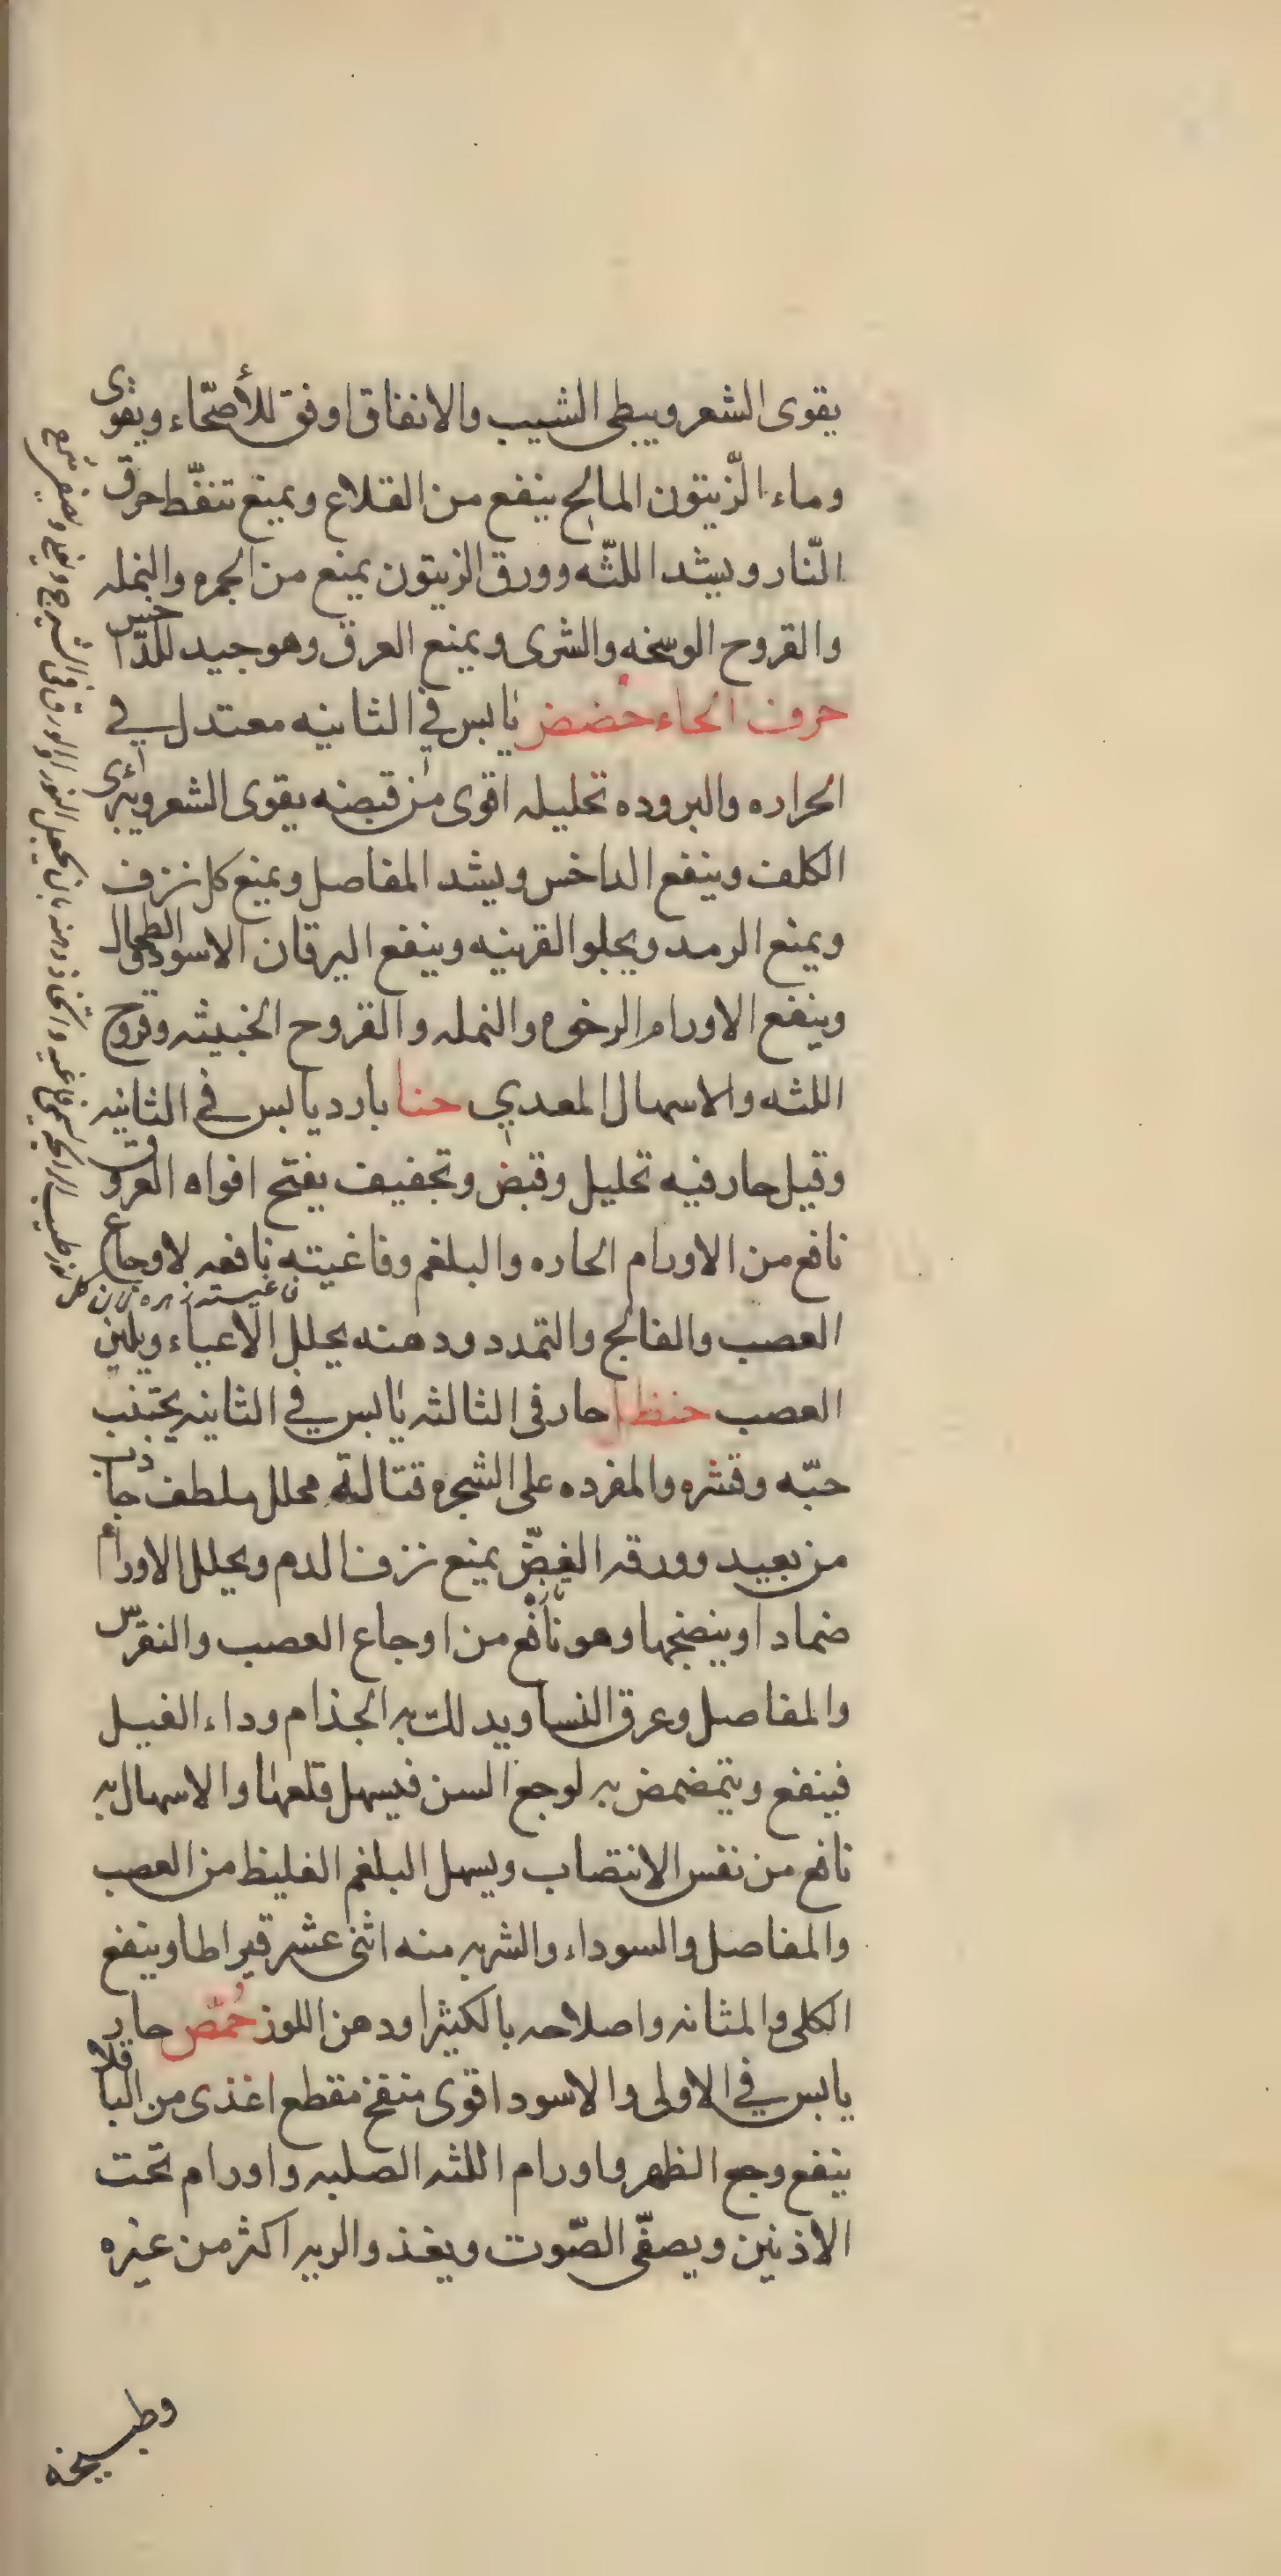 يقوى الشعر ويبطى الشيب والانفاق اوفق للأصحّاء ويقوى
وماء الزّيتون المالح ينفع من القلاع ويمنع تنفّط حرق
النّار ويشد اللثّه وورق الزيتون يمنع من الجمره والنمله
والقروح الوسخه والشرى ويمنع العرق وهو جيد للدّاخس
حرف الحاء حُضض يابس في الثانيه معتدل في
الحراره والبروده تحليله اقوى من قبضه يقوى الشعر ويبرئ
الكلف وينفع الداخس ويشد المفاصل ويمنع كل نزف
ويمنع الرمد ويجلو القرنيه وينفع اليرقان الاسود والطحال
وينفع الاورام الرخوه والنمله والقروح الخبيثه وقروح
اللثه والاسهال المعدي حنا بارد يابس في الثانيه
وقيل حار فيه تحليل وقبض وتجفيف يفتح افواه العروق
نافع من الاورام الحاره والبلغم وفاغيته نافعه لاوجاع
العصب والفالج والتمدد ودهنه يحلل الاعياء ويلين
العصب حنظل حار فى الثالثه يابس في الثانيه يجتنب
حبّه وقشره والمفرده على الشجره قتالة محلل ملطف جاذب
من بعيد وورقه الغضّ يمنع نزف الدم ويحلل الاورام
ضمادا وينضجها وهو نافع من اوجاع العصب والنقرس
والمفاصل وعرق النسا ويدلك به الجذام وداء الفيل
فينفع ويتمضمض به لوجع السن فيسهل قلعها والاسهال به
نافع من نفس الانتصاب ويسهل البلغم الغليظ من العصب
والمفاصل والسوداء والشربه منه اثنى عشر قيراطا وينفع
الكلى والمثانه واصلاحه بالكثيرا ودهن اللوز حُمّص حار
يابس في الاولى والاسود اقوى منفخ مقطع اغذى من الباقلا
ينفع وجع الظهر واورام اللثه الصلبه واورام تحت
الاذنين ويصفّى الصّوت ويغذو الريه اكثر من غيره
وطبيخه
فاغيته زهره لان كل نور طيب الرايحه